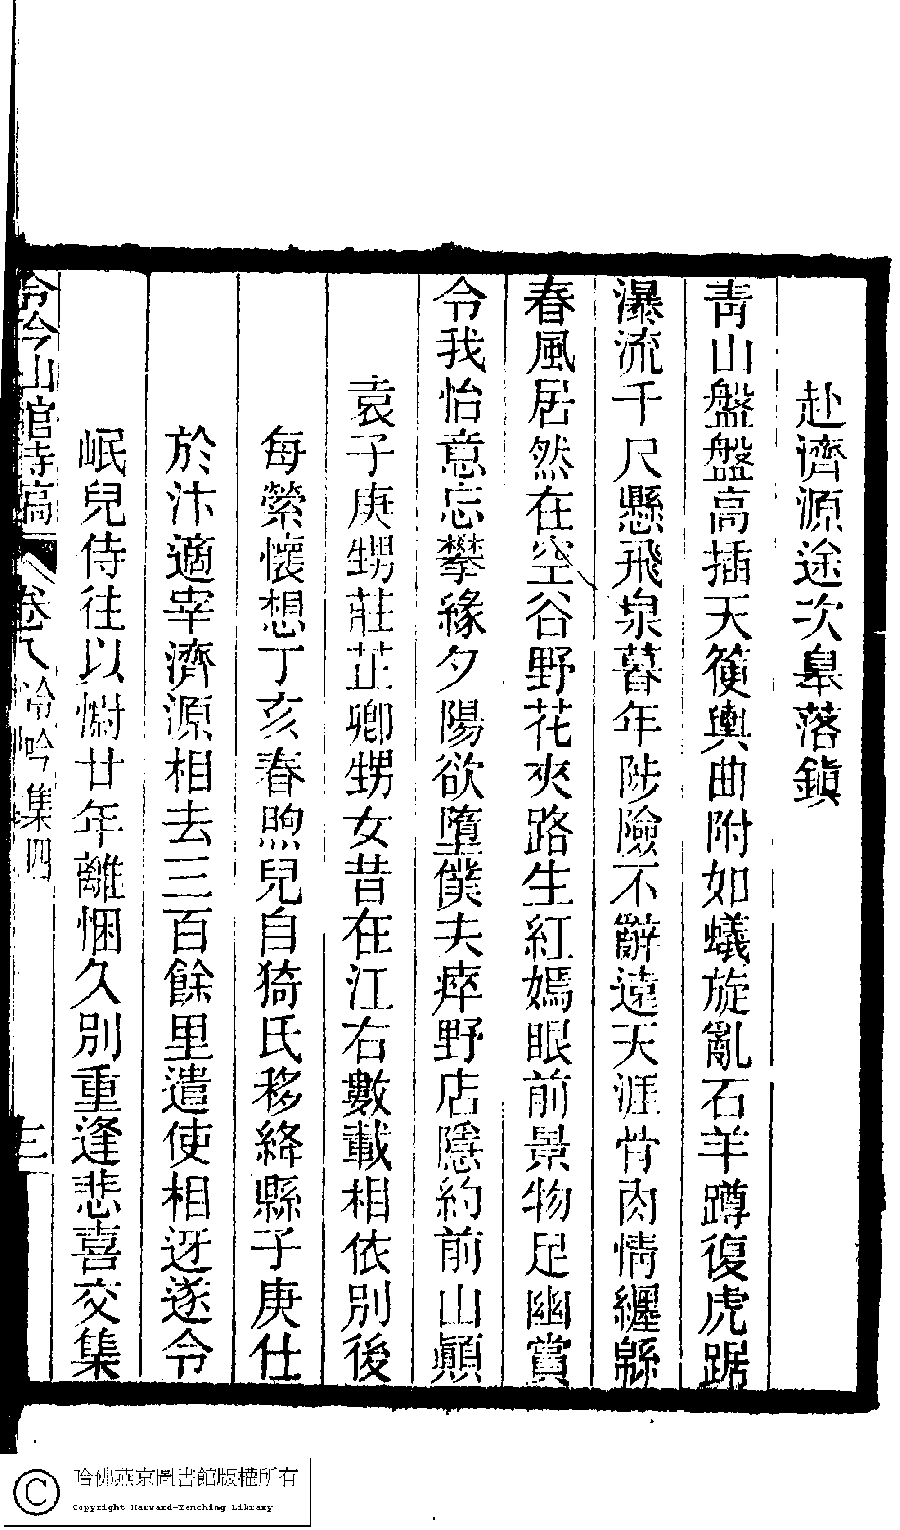 赴濟源途次臯落鎭
靑山盤盤高插天箯輿曲附如蟻旋亂石羊蹲復虎踞
瀑流千尺懸飛泉暮年陟險不辭遠天涯骨肉情纒緜
春風居然在空谷野花夾路生紅嫣眼前景物足幽賞
令我怡意忘攀緣夕陽欲墮僕夫瘁野店隱約前山顚
袁子庚甥莊芷卿甥女昔在江右數載相依別後
每縈懷想丁亥春煦兒自猗氏移絳縣子庚仕
於汴適宰濟源相去三百餘里遣使相迓遂令
岷兒侍往以慰廿年離悃久別重逢悲喜交集
冷吟山館詩稿 卷八 冷吟集四 三
哈佛燕京圖書館版權所有
Copyright Harvard-Yenching Library